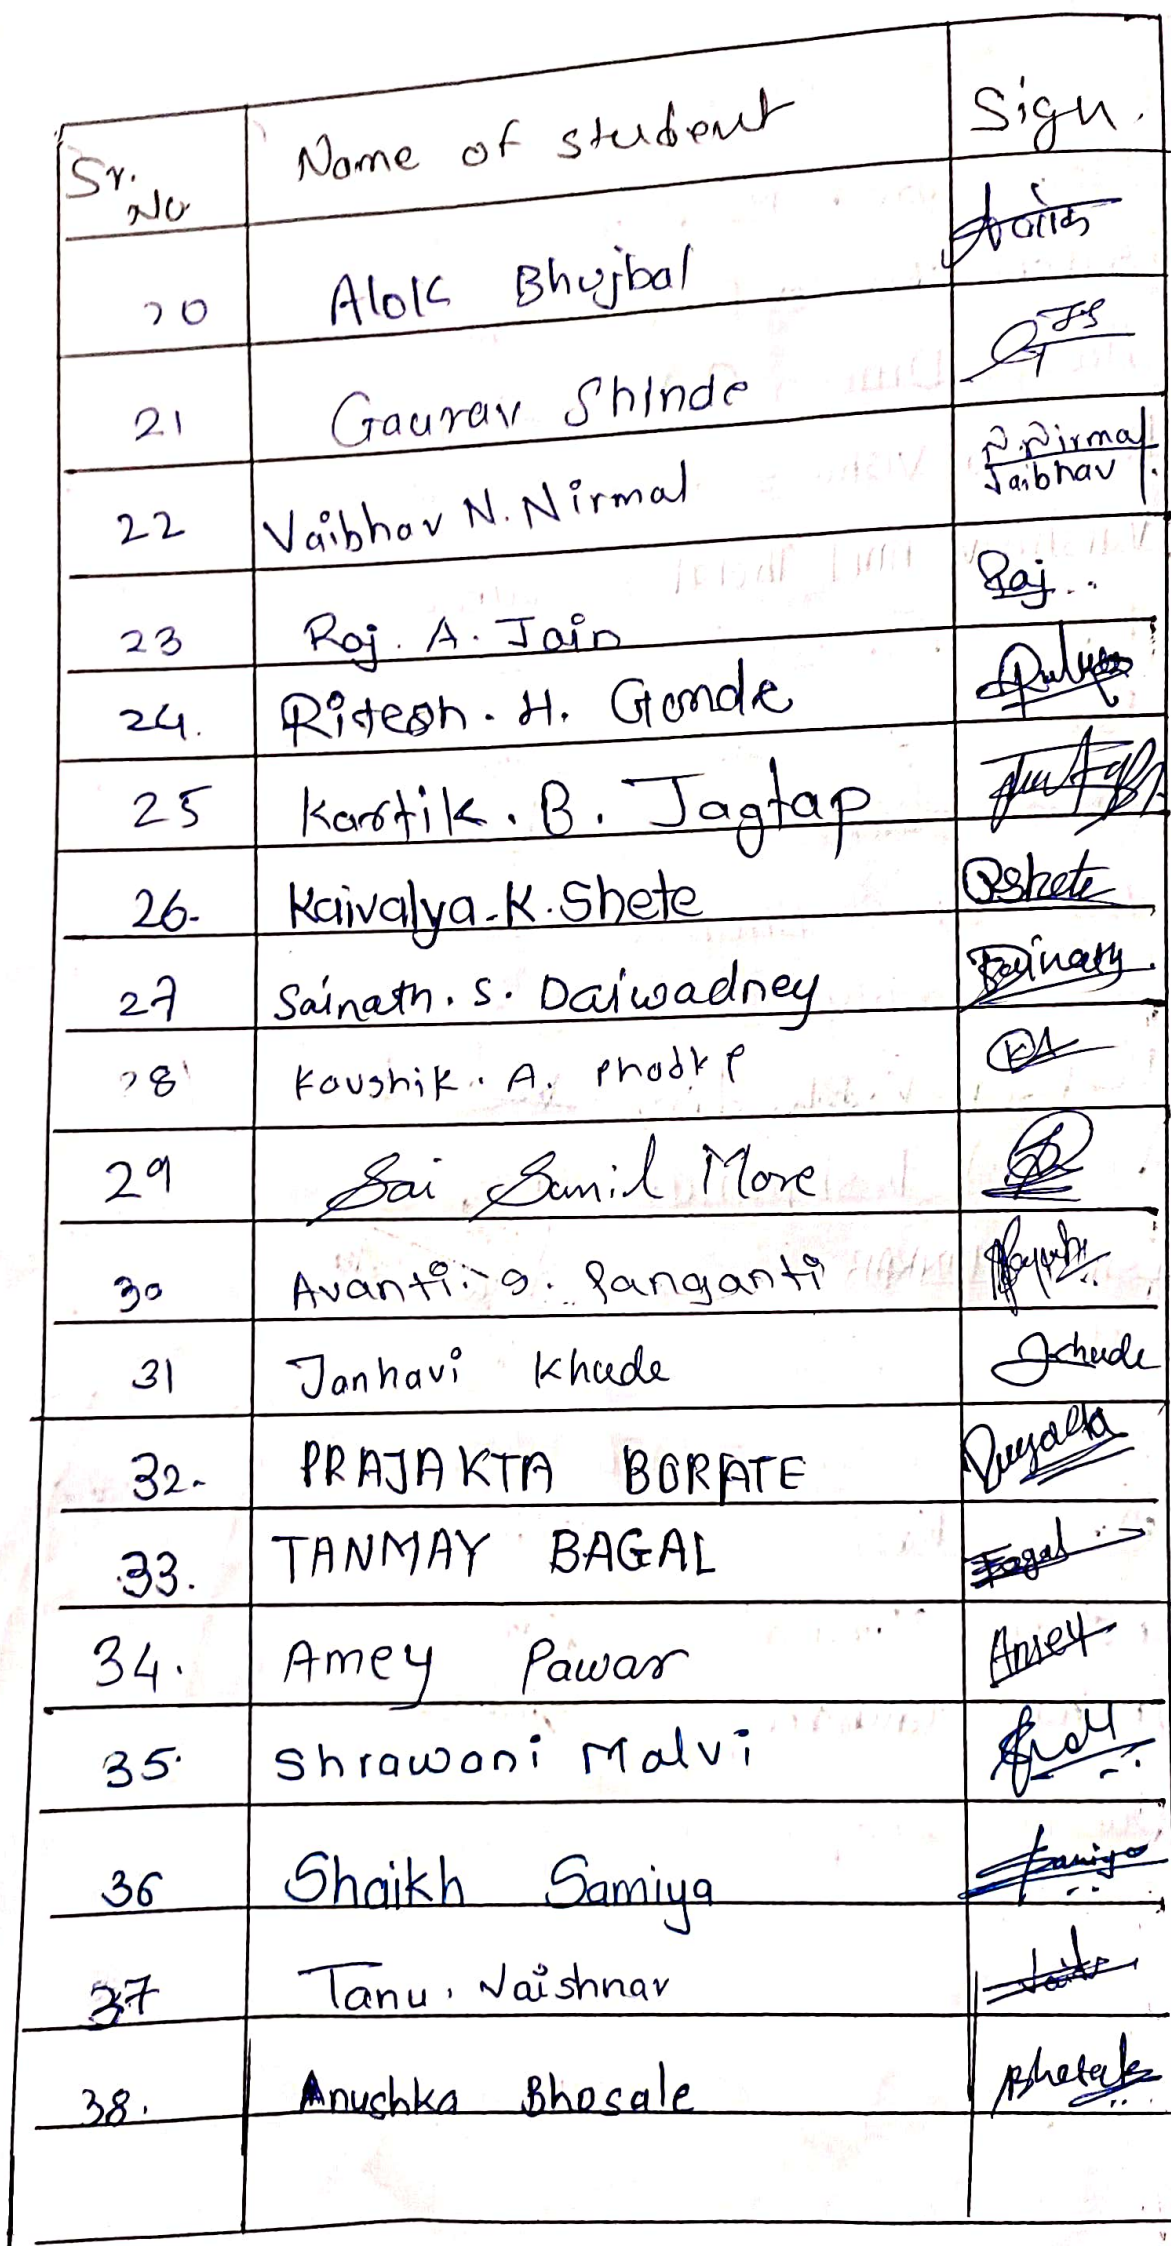 Sr. No Name of student Sign.
20 Alok Bhujbal
21 Gaurav Shinde
22 Vaibhav N. Nirmal N. Nirmal Vaibhav
23 Raj. A. Jain Raj..
24. Ritesh. H. Gonde
25 Kartik. B. Jagtap
26- Kaivalya-K. Shete Shete
27 Sainath. S. Daiwadney Sainath
28 Koushik. A. Phodke
29 Sai Sunil More
30 Avanti. S. Panganti
31 Janhavi Khude Jkhude
32- PRAJAKTA BORATE
33. TANMAY BAGAL
34. Amey Pawar Amey
35. Shrawani Malvi
36 Shaikh Samiya Samiya
37 Tanu. Vaishnav
38. Anushka Bhosale